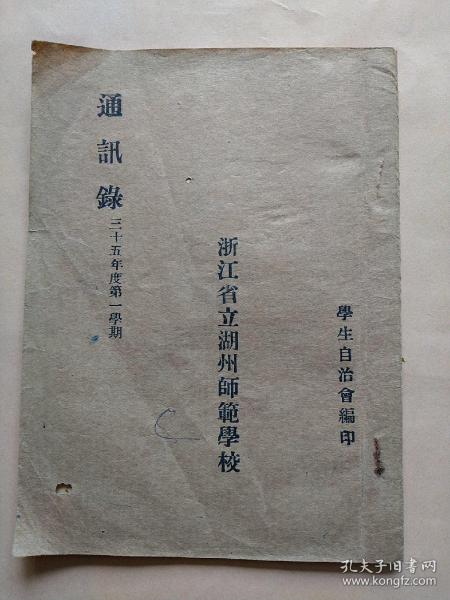 學生自治會編印
浙江省立湖州師範學校
通訊錄
三十五年度第一學期
孔夫子旧书网
www.kongfz.com